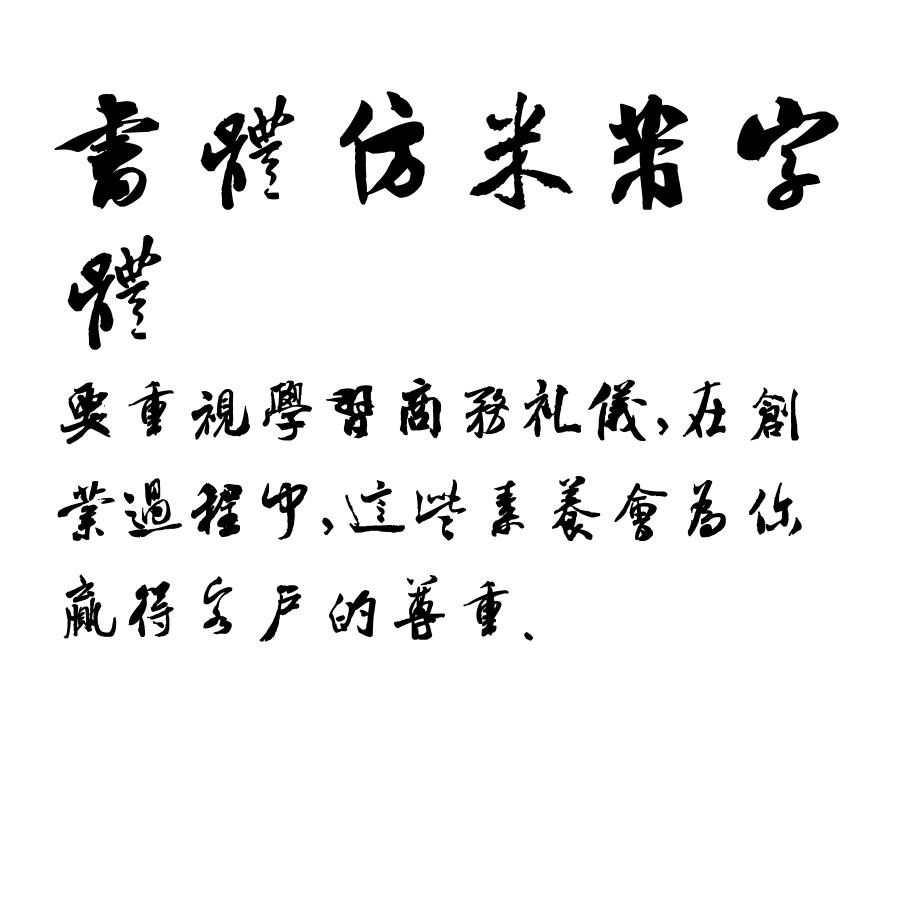 書體仿米芾字
體
要重視學習商務礼儀,在創
業過程中,這些素養會為你
贏得客戶的尊重.